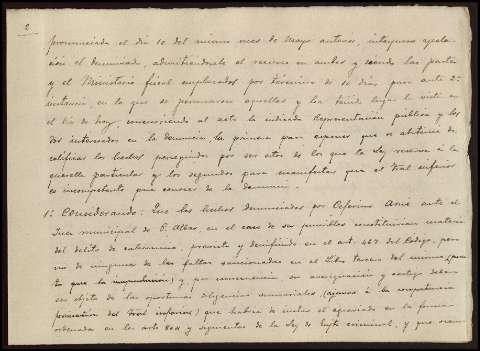 2
pronunciada el día 10 del mismo mes de Mayo anterior, interpuso apela-
ción el denunciado, admitiéndosele el recurso en ambos y siendo las partes
y el Ministerio fiscal emplazados por término de diez días para ante 2ª
instancia, en la que se personaron aquellas y ha tenido lugar la vista en
el día de hoy, concurriendo al acto la indicada Representación pública y los
dos interesados en la denuncia la primera para exponer que se abstenía de
calificar los hechos perseguidos por ser estos de los que la Ley reserva a la
querella particular y los segundos para manifestar que el Tral inferior
es incompetente para conocer de la denuncia.
1º Considerando: Que los hechos denunciados por Ceferino ante el
Juez municipal de en el caso de ser punibles constituirían materia
del delito de calumnia, previsto y definido en el art. 467 del Código, pero
no de ninguna de las faltas sancionadas en el Libro tercero del mismo
y, por consecuencia, su averiguación y castigo deben
ser objeto de las oportunas diligencias sumariales (ajenas á la competencia
del Tral inferior) que habría de el agraviado en la forma
ordenada en los arts 804 y siguientes de la Ley de Enjto criminal, y que